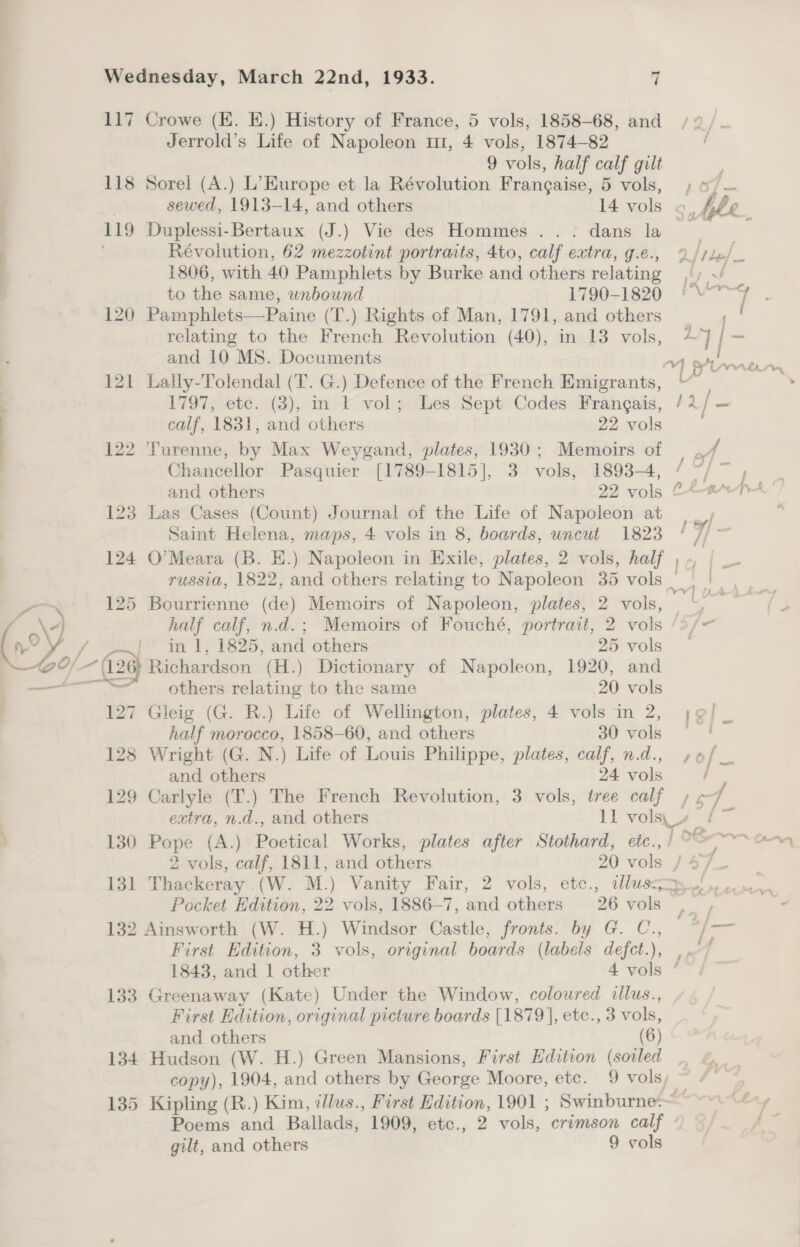 Wednesday, March 22nd, 1933. 7
117 Crowe (E. E.) History of France, 5 vols, 1858–68, and
Jerrold's Life of Napoleon III, 4 vols, 1874–82
9 vols, half calf gilt
118 Sorel (A.) L'Europe et la Révolution Française, 5 vols,
sewed, 1913–14, and others 14 vols
119 Duplessi-Bertaux (J.) Vie des Hommes . . . dans la
Révolution, 62 mezzotint portraits, 4to, calf extra, g.e.,
1806, with 40 Pamphlets by Burke and others relating
to the same, unbound 1790–1820
120 Pamphlets—Paine (T.) Rights of Man, 1791, and others
relating to the French Revolution (40), in 13 vols,
and 10 MS. Documents
121 Lally-Tolendal (T. G.) Defence of the French Emigrants,
1797, etc. (3), in 1 vol; Les Sept Codes Français,
calf, 1831, and others 22 vols
122 Turenne, by Max Weygand, plates, 1930; Memoirs of
Chancellor Pasquier [1789–1815], 3 vols, 1893–4,
and others 22 vols
123 Las Cases (Count) Journal of the Life of Napoleon at
Saint Helena, maps, 4 vols in 8, boards, uncut 1823
124 O'Meara (B. E.) Napoleon in Exile, plates, 2 vols, half
russia, 1822, and others relating to Napoleon 35 vols
125 Bourrienne (de) Memoirs of Napoleon, plates, 2 vols,
half calf, n.d.; Memoirs of Fouché, portrait, 2 vols
in 1, 1825, and others 25 vols
126 Richardson (H.) Dictionary of Napoleon, 1920, and
others relating to the same 20 vols
127 Gleig (G. R.) Life of Wellington, plates, 4 vols in 2,
half morocco, 1858–60, and others 30 vols
128 Wright (G. N.) Life of Louis Philippe, plates, calf, n.d.,
and others 24 vols
129 Carlyle (T.) The French Revolution, 3 vols, tree calf
extra, n.d., and others 11 vols
130 Pope (A.) Poetical Works, plates after Stothard, etc.,
2 vols, calf, 1811, and others 20 vols
131 Thackeray (W. M.) Vanity Fair, 2 vols, etc., illus.,
Pocket Edition, 22 vols, 1886–7, and others 26 vols
132 Ainsworth (W. H.) Windsor Castle, fronts. by G. C.,
First Edition, 3 vols, original boards (labels defct.),
1843, and 1 other 4 vols
133 Greenaway (Kate) Under the Window, coloured illus.,
First Edition, original picture boards [1879], etc., 3 vols,
and others (6)
134 Hudson (W. H.) Green Mansions, First Edition (soiled
copy), 1904, and others by George Moore, etc. 9 vols
135 Kipling (R.) Kim, illus., First Edition, 1901; Swinburne.
Poems and Ballads, 1909, etc., 2 vols, crimson calf
gilt, and others 9 vols